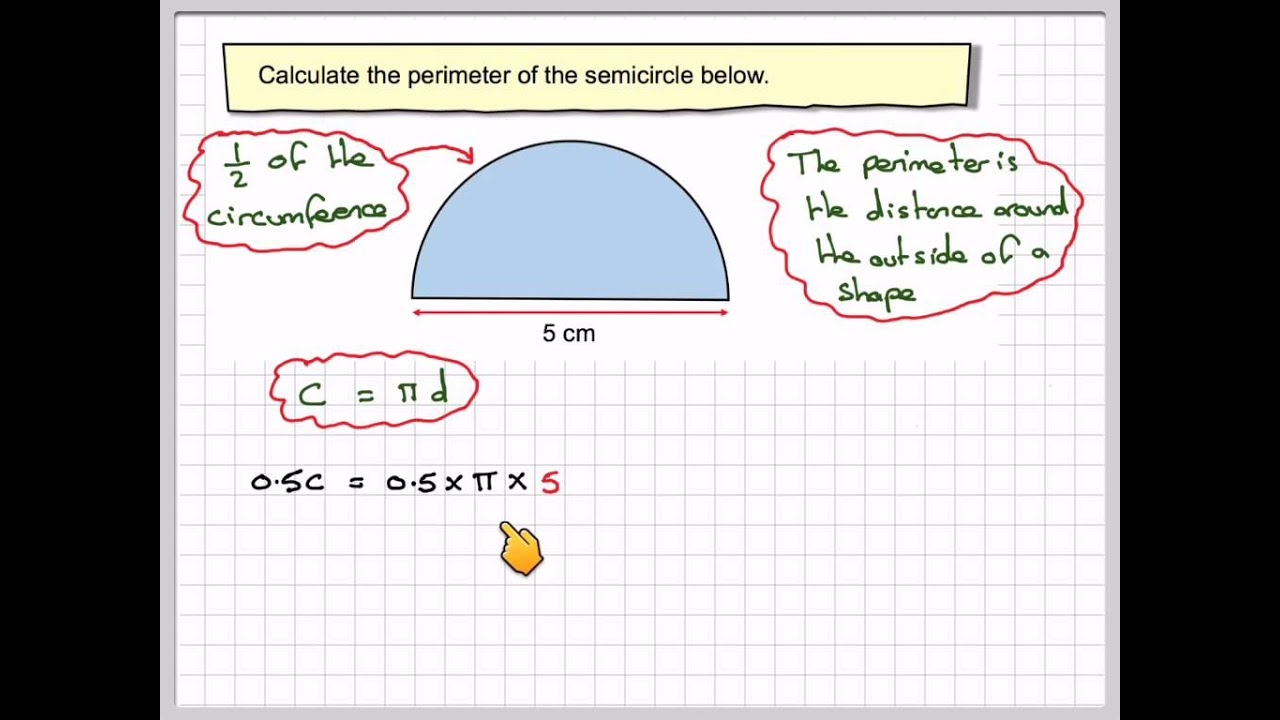 Calculate the perimeter of the semicircle below.
1/2 of the
circumference
The perimeter is
the distance around
the outside of a
shape
5 cm
C = πd
0.5C = 0.5 × π × 5